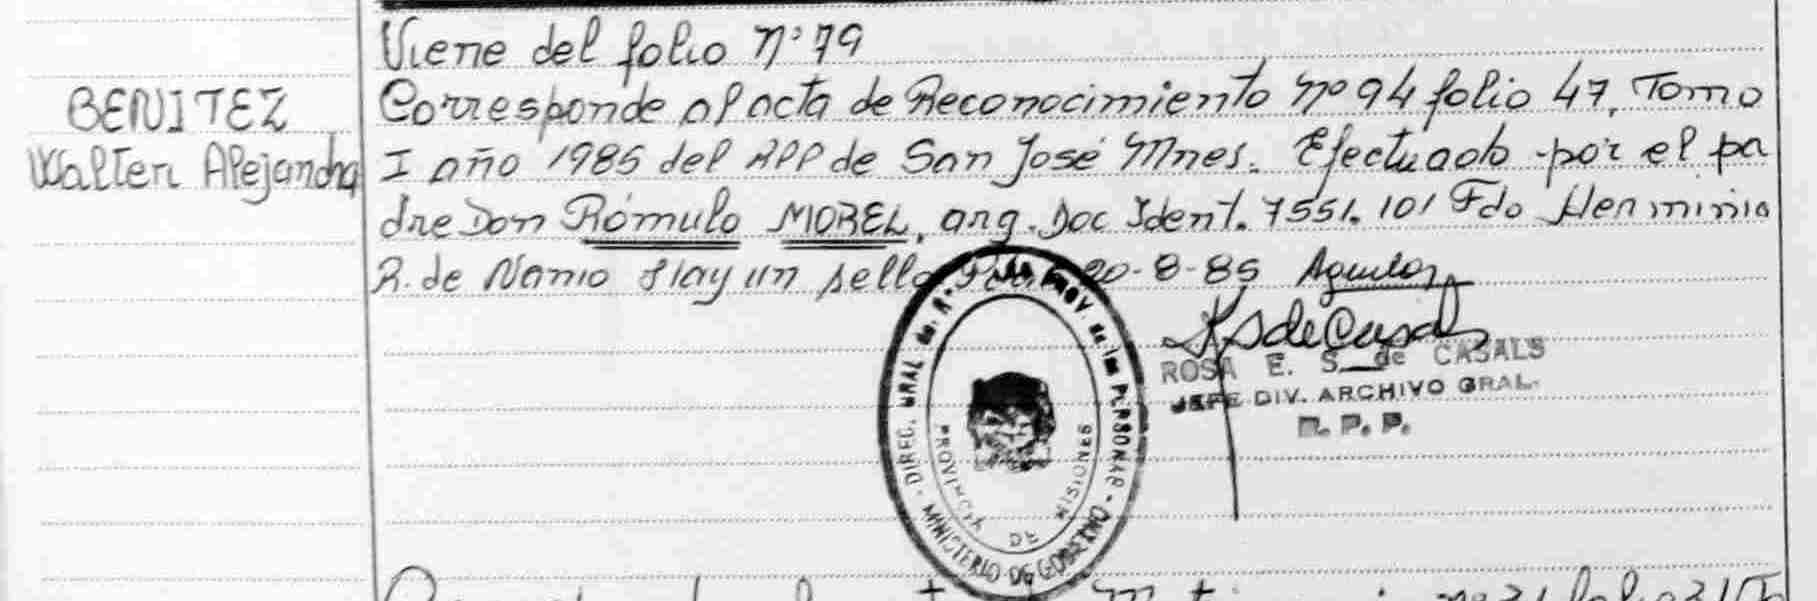 Viene del folio Nº 79
BENITEZ
Walter Alejandro
Corresponde al acta de Reconocimiento Nº 94 folio 47, Tomo
I año 1985 del RPP de San José Mnes. Efectuado por el pa
dre Don Rómulo MOREL, arg. Doc Ident. 7551.101 Fdo Herminia
R. de Hay un sello 20-8-85 Aguilar
ROSA E. S. de CASALS
JEFE DIV. ARCHIVO GRAL.
R. P. P.
DIREC. GRAL de. PROV. de las PERSONAS - MINISTERIO DE GOBIERNO
PROVINCIA DE MISIONES